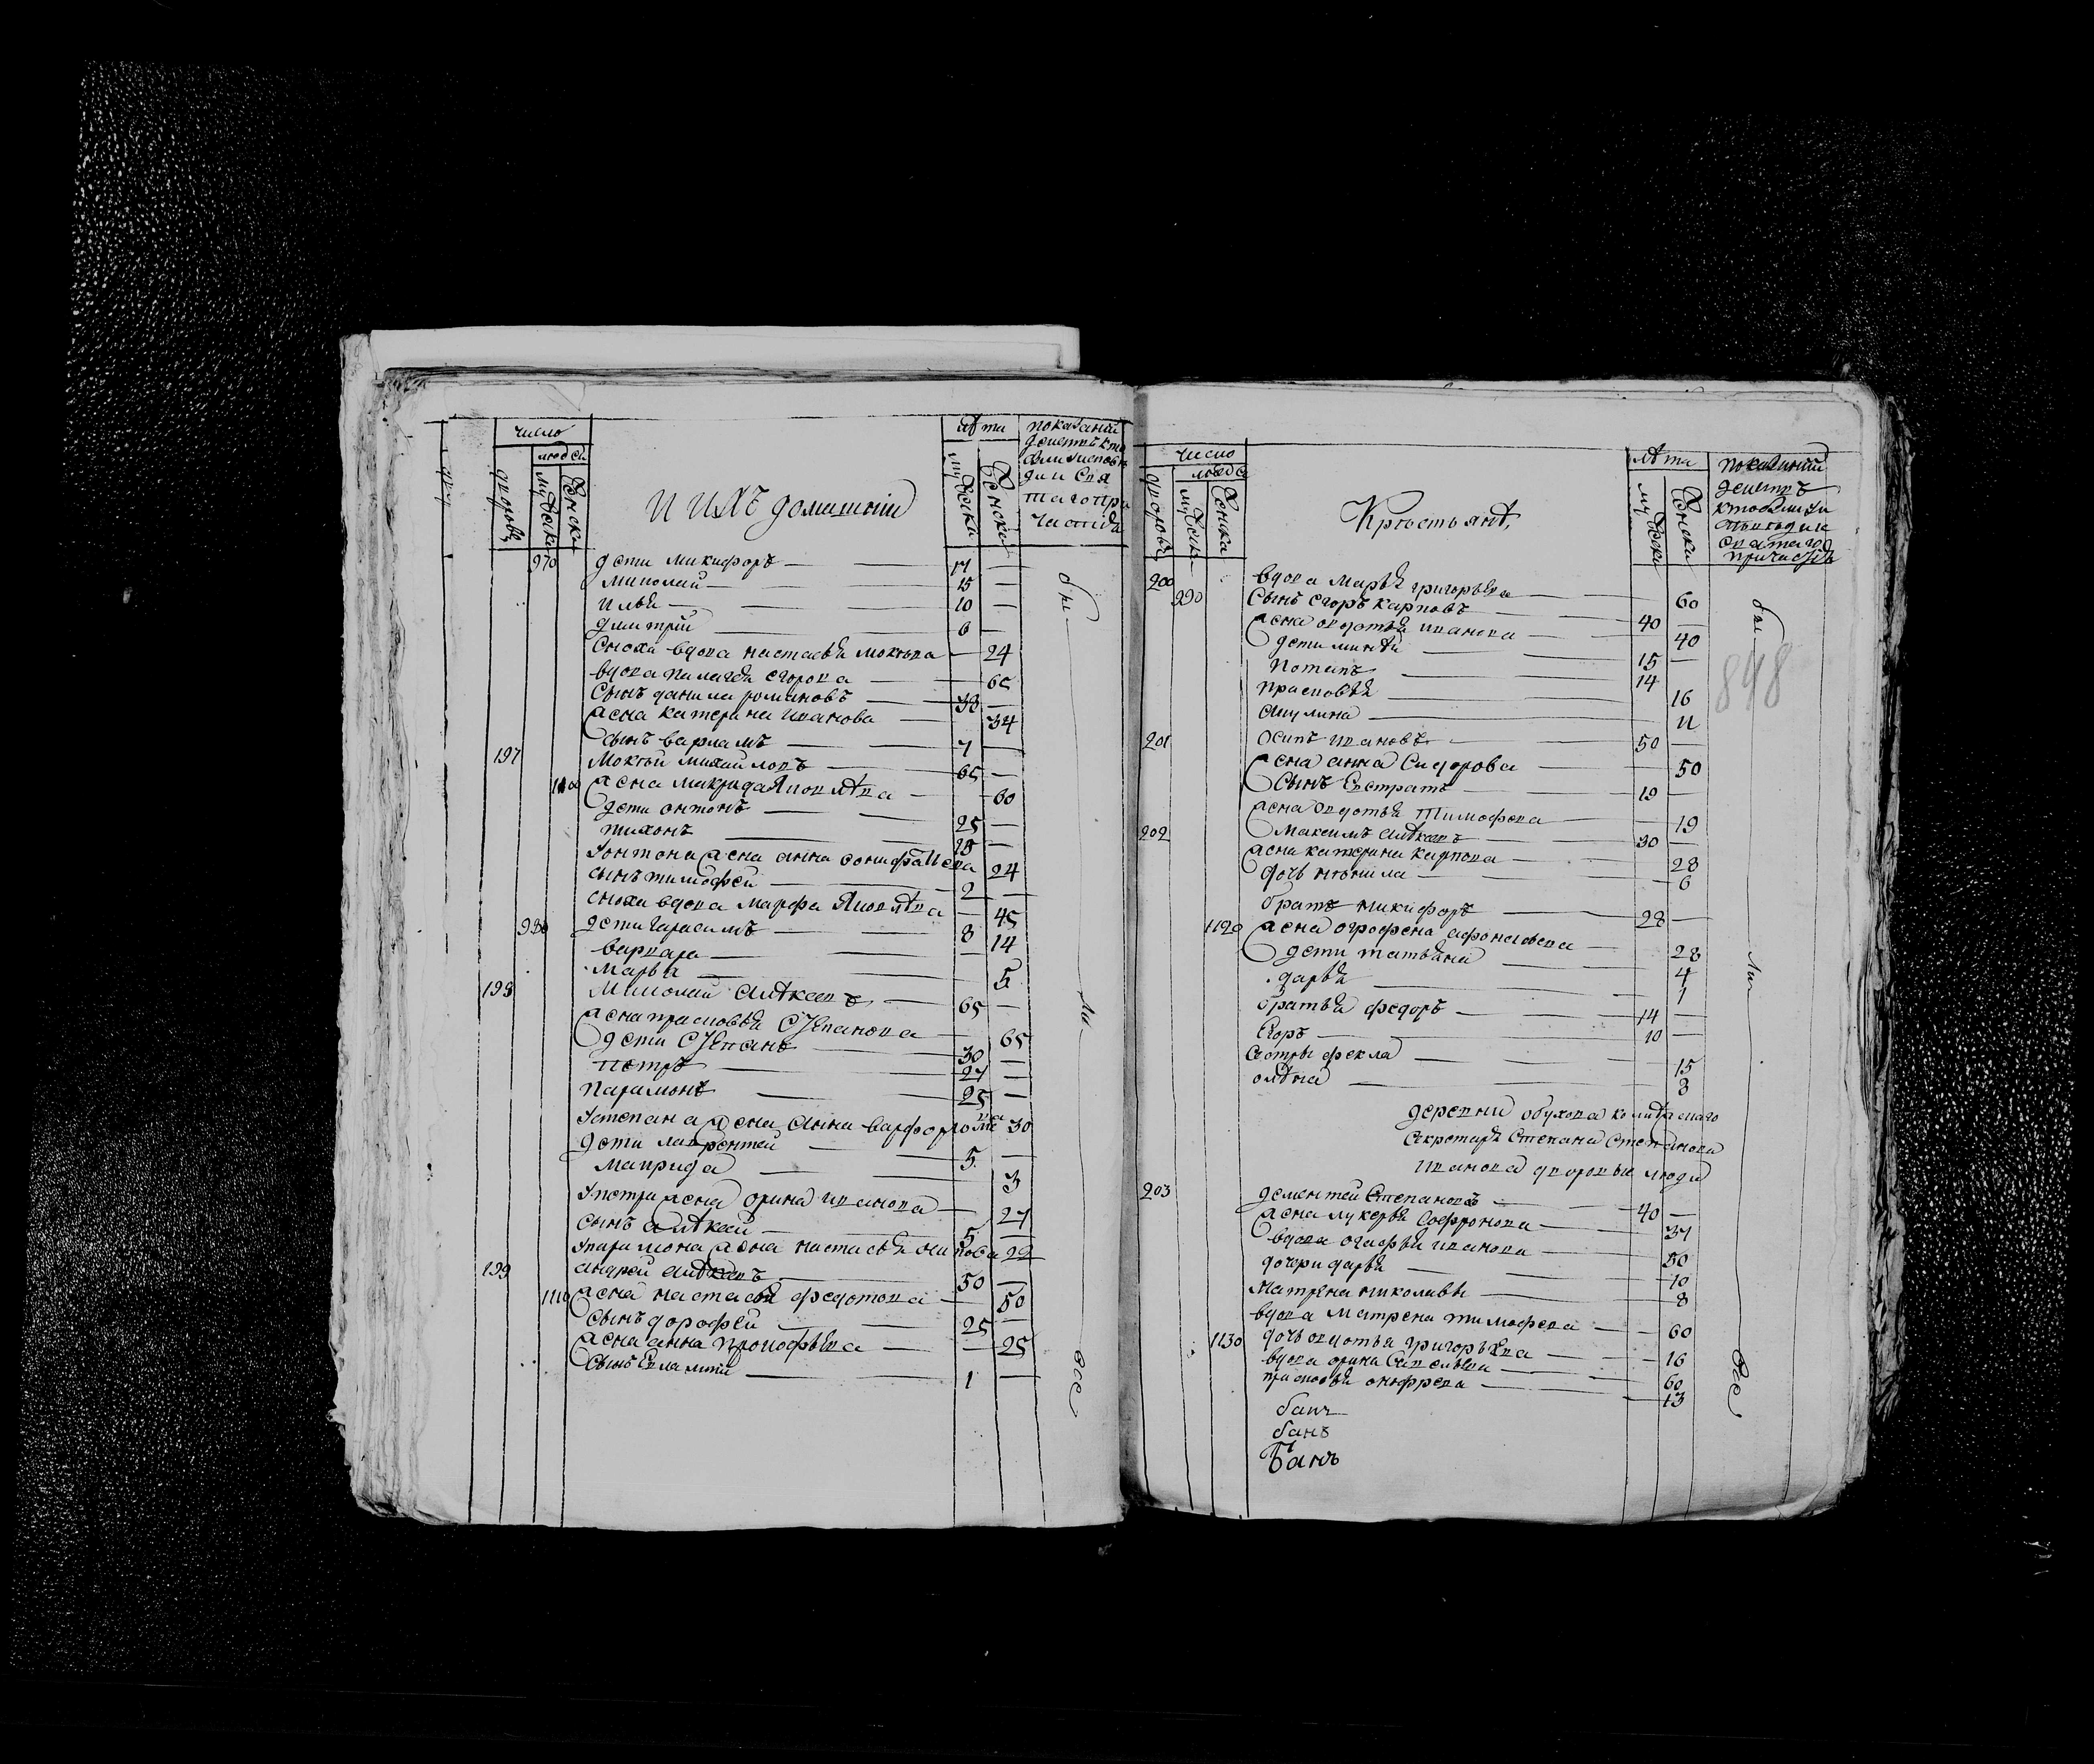 число
людей
дворовъ
мужеска
женска
И ихъ домашнии
лѣта
мужеска
женска
показаний
действ кто
былъ исповѣ
ди и Свя
таго при
частия
970 дети микифоръ — 17 —
миколай — 15 —
илья — 10 —
димитрий — 6 —
Сноха вдова настасья мокѣева — 24
вдова палагея егорова — 60
Сынъ данила романовъ — 38 —
жена катерина иванова — 34
сынъ варламъ — 7 —
197 Мокѣй михайловъ — 65 —
1100 жена макрида Яковлѣва — 60
дети антонъ — 25 —
тихонъ — 18 —
У антона жена анна
24
сынъ тимофей — 2 —
сноха вдова марфа Яковлѣва — 45
980 дети гарасимъ — 8
варвара — 14
Марья — 5
198 Миколай Алѣксеевъ — 65 —
жена прасковья Степанова — 65
дети Степанъ — 30 —
петръ — 27 —
парамонъ — 25 —
У степана жена Анна варфоломева 30
дети лаврентей — 5 —
макрида — 3
У петра жена орина иванова — 27
сынъ алѣксей — 5 —
У парамона жена настасья 22
199 андрей алѣксеевъ — 50 —
1110 жена настасья федотова — 50
Сынъ дорофей — 25 —
жена анна прокофьева — 25
Сынъ Евлампий — 1 —
бы
ли
все
число
людей
дворовъ
мужеска
женска
Крѣстьянѣ
лѣта
мужеска
женска
показаний
действъ
кто былъ и
исповеди и
святаго
причастия
200 вдова Марья григорьева — 60
990 Сынъ егоръ карповъ — 40 —
жена овдотья иванова — 40
дети — 15 —
Потапъ — 14
прасковья — 16
акулина — 11
201 Осипъ ивановъ — 50 —
жена анна Сидорова — 50
Сынъ Евстратъ — 19 —
жена овдотья Тимофева — 19
202 Максимъ алѣксеевъ — 30 —
жена катерина карпова — 28
дочь — 6
братъ микифоръ — 28 —
1120 жена огрофена афонасьева — 28
дети татьяна — 4
дарья — 1
братья федоръ — 14 —
Егоръ — 10 —
Сестры фекла — 15
олѣна — 8
деревни обухова
Секретаря Степана Степанова
Иванова дворовые люди
203 дементей Степановъ — 40 —
жена лукерья Софронова — 37
вдова огафья иванова — 50
дочери дарья — 10
Матрена — 8
вдова Матрена тимофева — 60
1130 дочь овдотья григорьева — 16
вдова орина — 60
прасковья онофрева — 13
банъ
банъ
Банъ
бы
848
ли
все